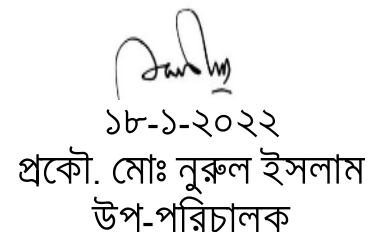 ১৮-১-২০২২
প্রকৌ. মোঃ নুরুল ইসলাম
উপ-পরিচালক